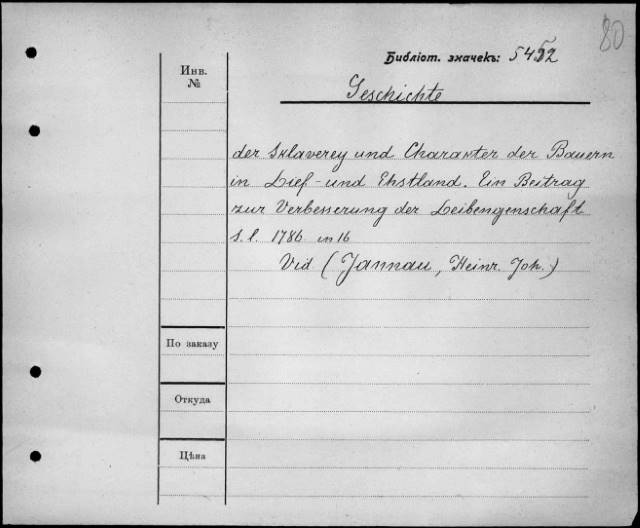 80
Библіот. значекъ: 5452
Инв.
№
Geschichte
der Sklaverey und Charakter der Bauern
in Lief- und Ehstland. Ein Beitrag
zur Verbesserung der Leibengenschaft
s. l. 1786 in 16
Vid (Jannau, Heinr. Joh.)
По заказу
Откуда
Цѣна